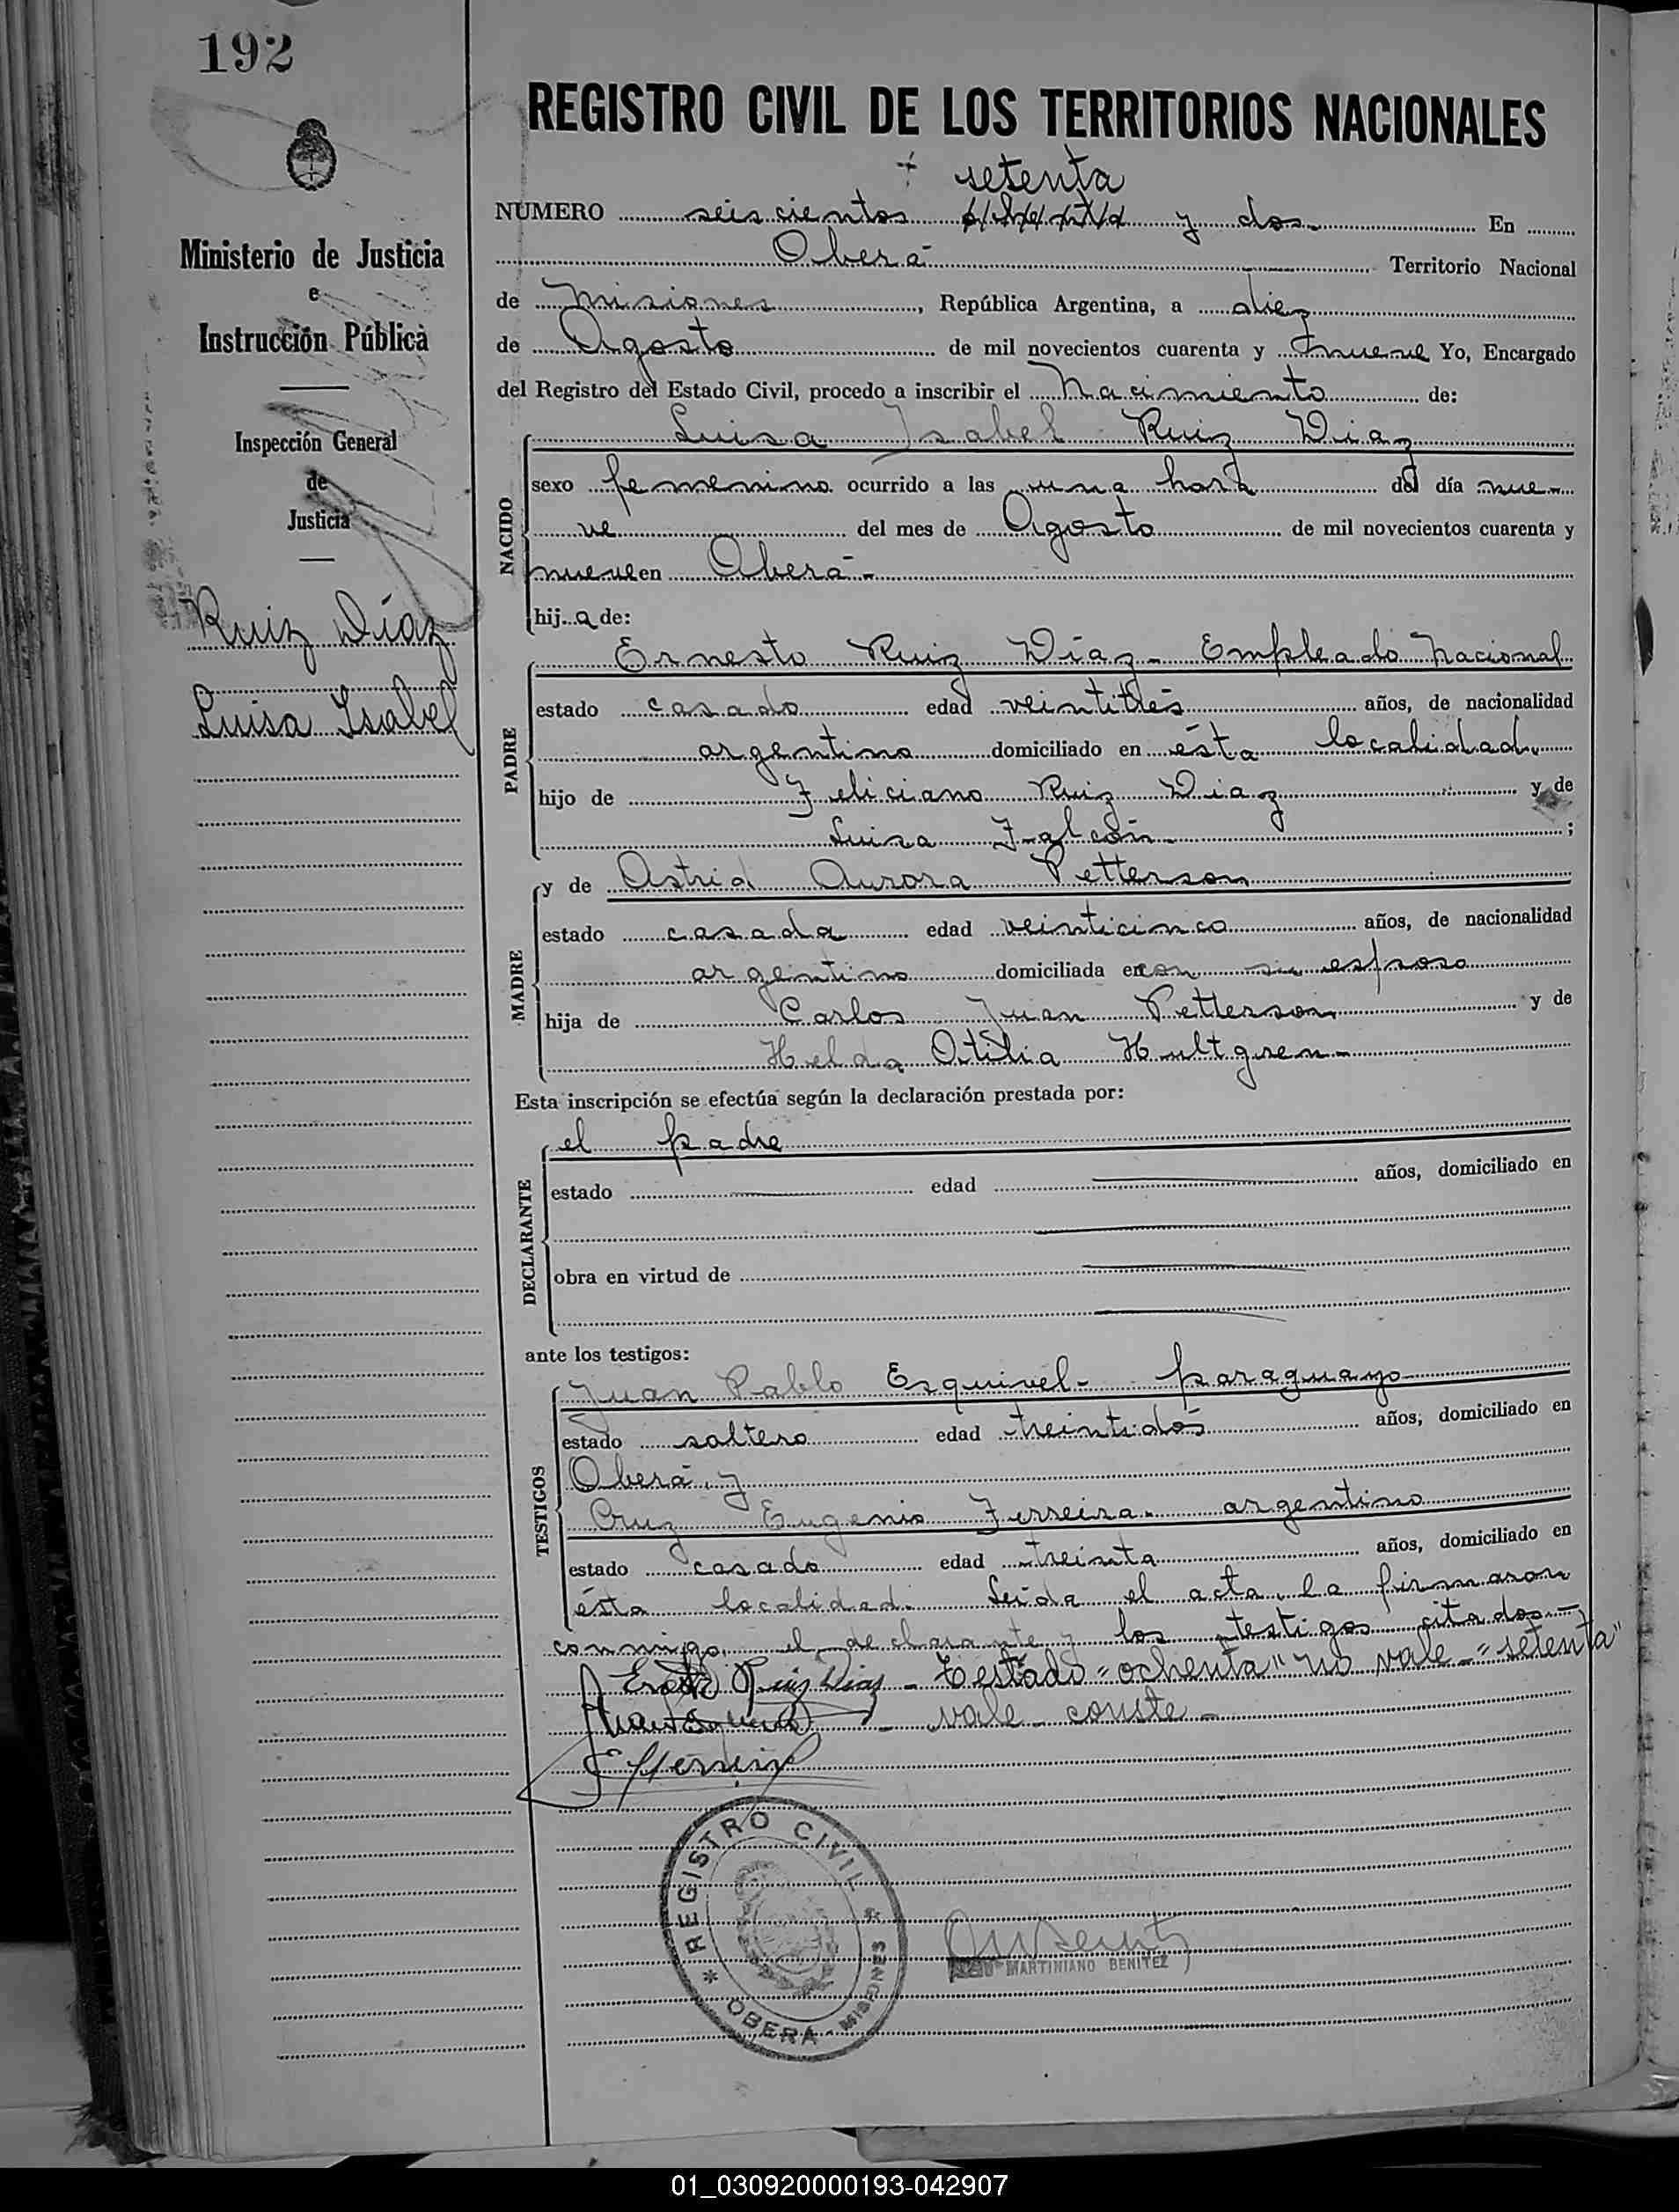 192
REGISTRO CIVIL DE LOS TERRITORIOS NACIONALES
+ setenta
NUMERO seiscientos ochenta y dos- En
Oberá Territorio Nacional
de Misiones, República Argentina, a diez
de Agosto de mil novecientos cuarenta y nueve Yo, Encargado
del Registro del Estado Civil, procedo a inscribir el Nacimiento de:
Ministerio de Justicia
e
Instrucción Pública
Inspección General
de
Justicia
Ruiz Díaz
Luisa Isabel
NACIDO
Luisa Isabel Ruiz Diaz
sexo femenino ocurrido a las una hora del día nue-
ve del mes de Agosto de mil novecientos cuarenta y
nueve en Oberá-
hija de:
PADRE
Ernesto Ruiz Díaz- Empleado Nacional
estado casado edad veintitrés años, de nacionalidad
argentino domiciliado en ésta localidad.
hijo de Feliciano Ruiz Diaz y de
Luisa Falcón- ;
MADRE
y de Astrid Aurora Petterson
estado casada edad veinticinco años, de nacionalidad
argentina domiciliada en con su esposo
hija de Carlos Juan Petterson y de
Helda Otilia Hultgren-
Esta inscripción se efectúa según la declaración prestada por:
DECLARANTE
el padre
estado edad años, domiciliado en
obra en virtud de
ante los testigos:
TESTIGOS
Juan Pablo Esquivel- paraguayo
estado soltero edad treintidós años, domiciliado en
Oberá, y
Cruz Eugenio Ferreira- argentino
estado casado edad treinta años, domiciliado en
ésta localidad. Leída el acta, la firmaron
conmigo, el declarante y los testigos citados-
Ruiz Diaz - Testado "ochenta" no vale - "setenta"
- vale - conste -
REGISTRO CIVIL
* OBERA - MISIONES *
MARTINIANO BENITEZ
01_030920000193-042907